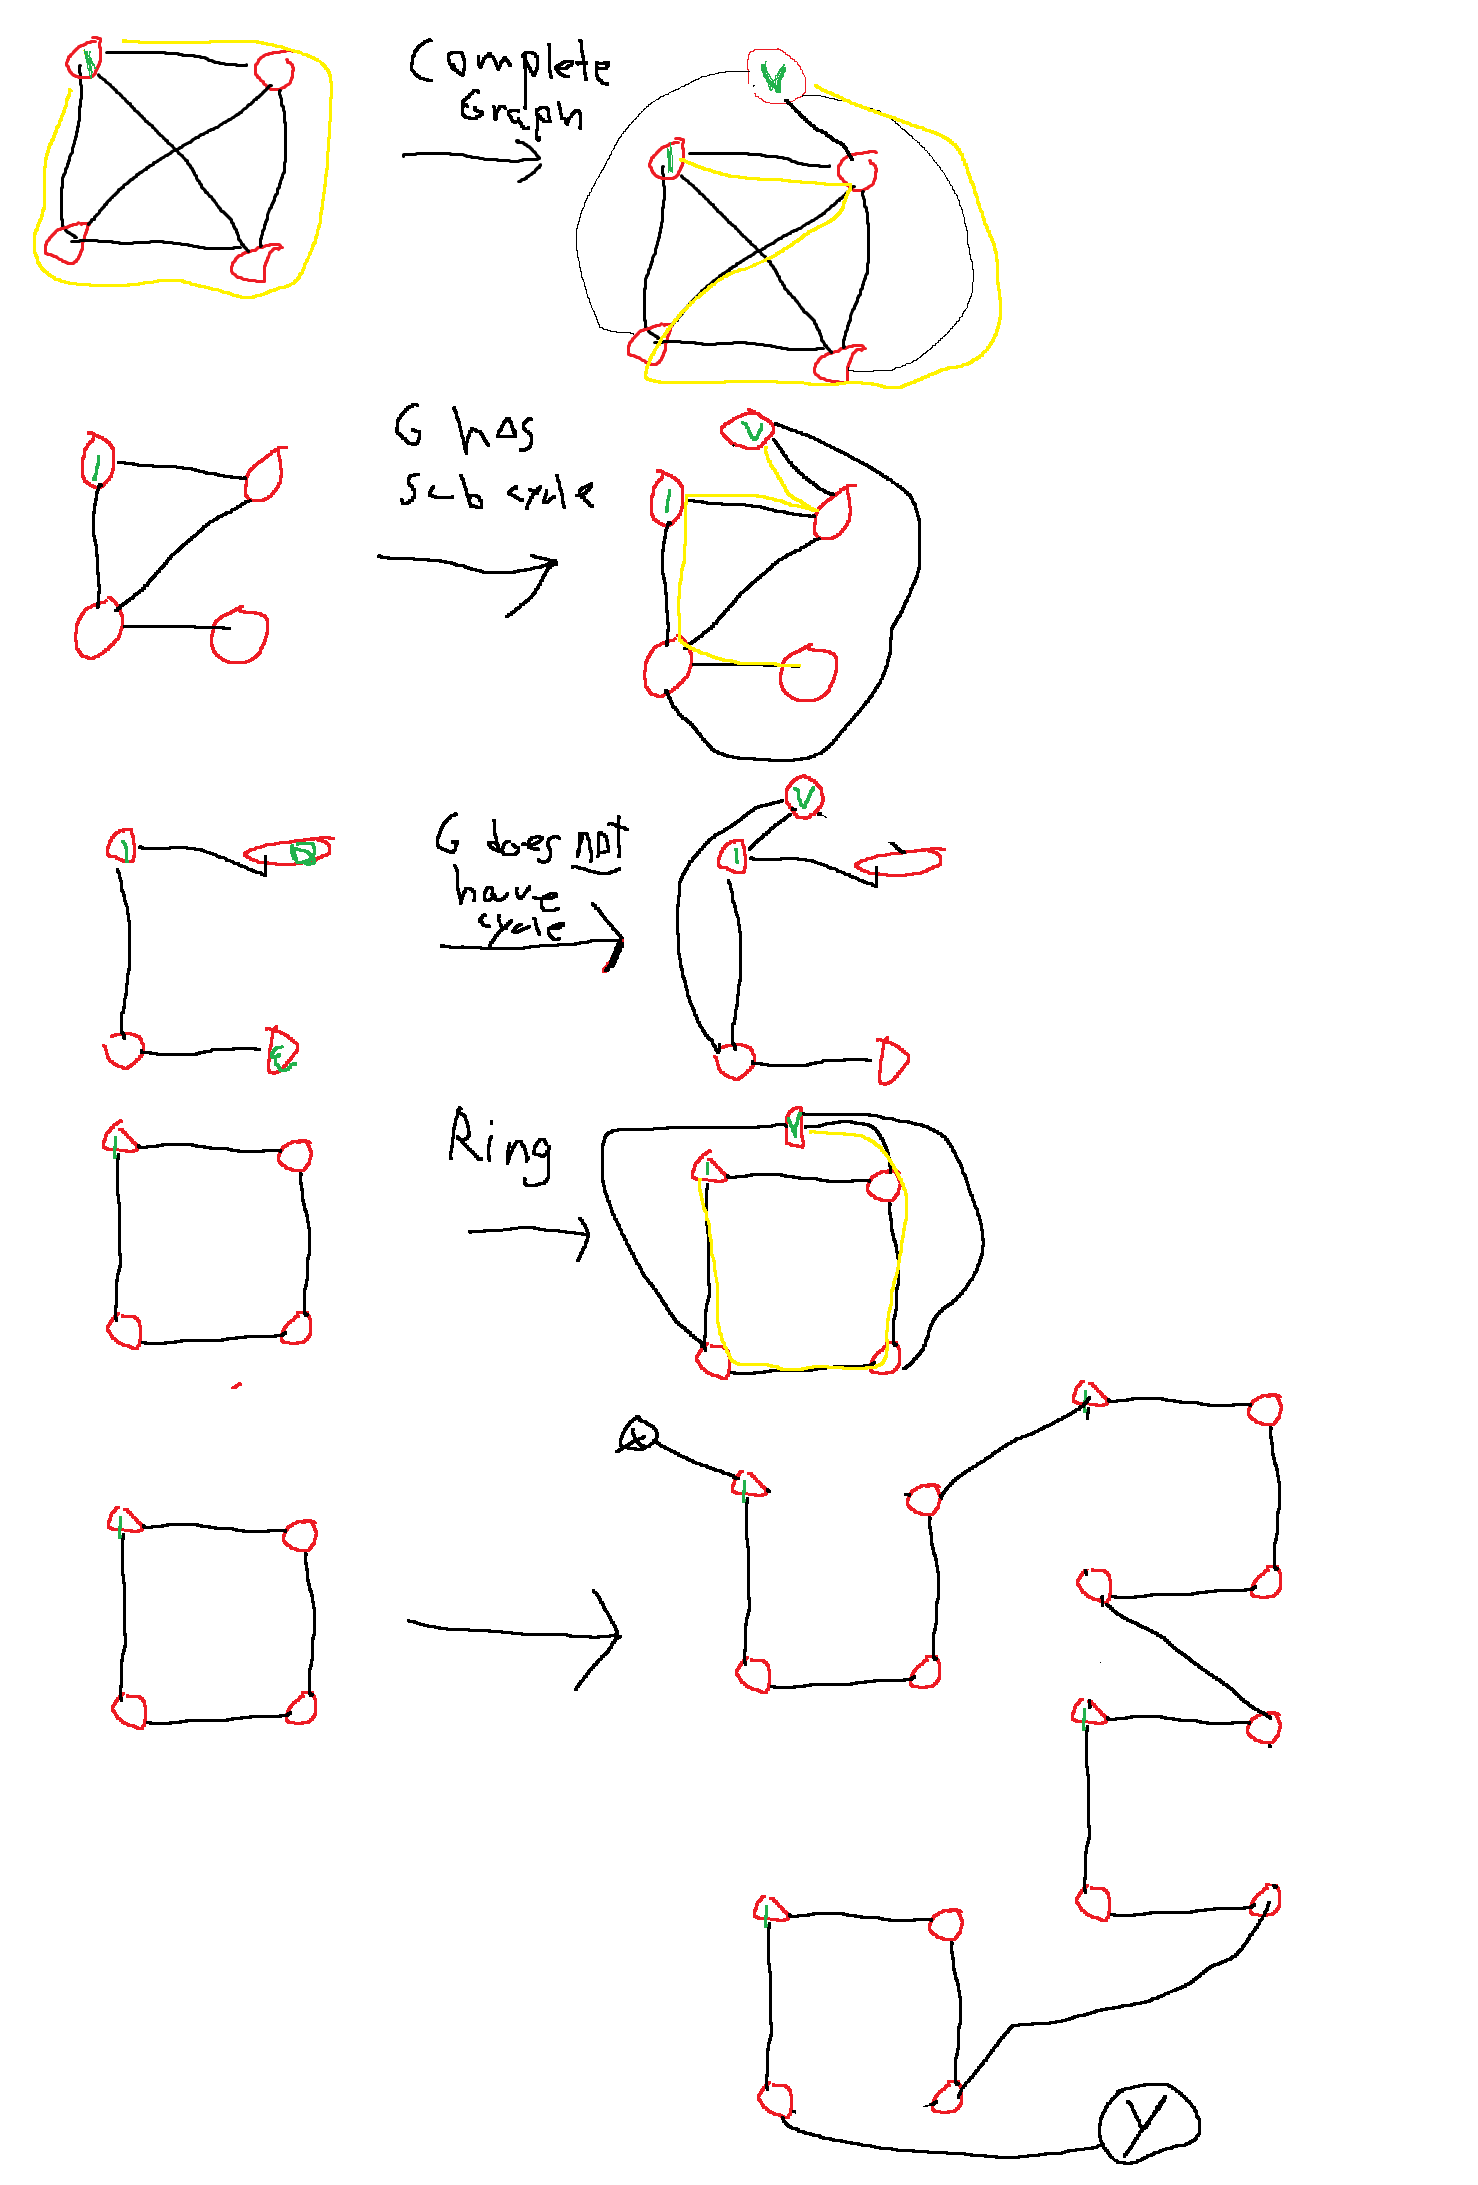 Complete
Graph
V
1
1
G has
Sub cycle
V
1
1
G does not
have
cycle
V
1
1
Ring
V
1
1
X
1
1
1
1
1
Y